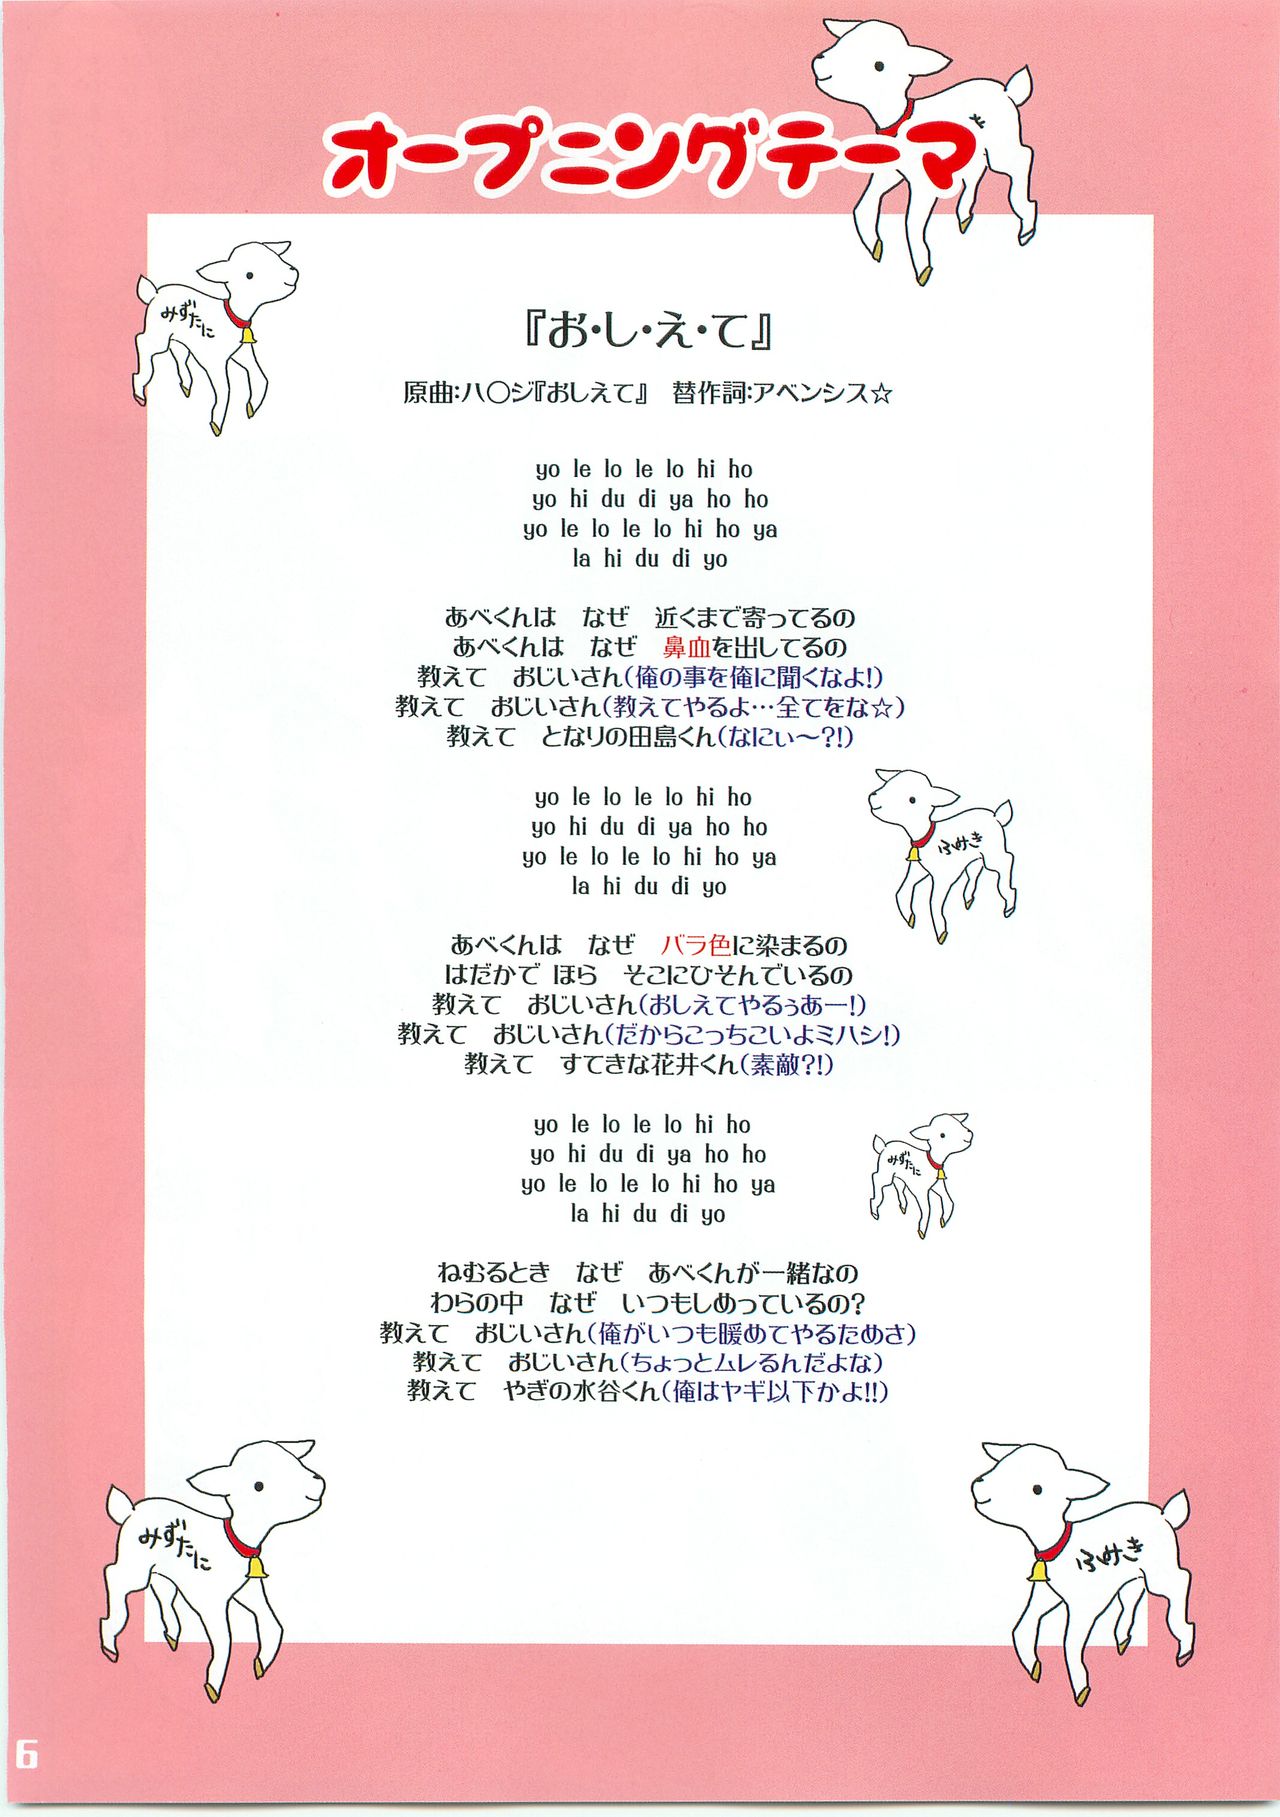 オープニングテーマ
みずたに
『お・し・え・て』
原曲:ハ○ジ『おしえて』 替作詞:アベンシス☆
yo le lo le lo hi ho
yo hi du di ya ho ho
yo le lo le lo hi ho ya
la hi du di yo
あべくんは なぜ 近くまで寄ってるの
あべくんは なぜ 鼻血を出してるの
教えて おじいさん(俺の事を俺に聞くなよ!)
教えて おじいさん(教えてやるよ…全てをな☆)
教えて となりの田島くん(なにぃ~?!)
yo le lo le lo hi ho
yo hi du di ya ho ho
yo le lo le lo hi ho ya
la hi du di yo
ふみき
あべくんは なぜ バラ色に染まるの
はだかで ほら そこにひそんでいるの
教えて おじいさん(おしえてやるぅあー!)
教えて おじいさん(だからこっちこいよミハシ!)
教えて すてきな花井くん(素敵?!)
yo le lo le lo hi ho
yo hi du di ya ho ho
yo le lo le lo hi ho ya
la hi du di yo
みずたに
ねむるとき なぜ あべくんが一緒なの
わらの中 なぜ いつもしめっているの?
教えて おじいさん(俺がいつも暖めてやるためさ)
教えて おじいさん(ちょっとムレるんだよな)
教えて やぎの水谷くん(俺はヤギ以下かよ!!)
みずたに
ふみき
6